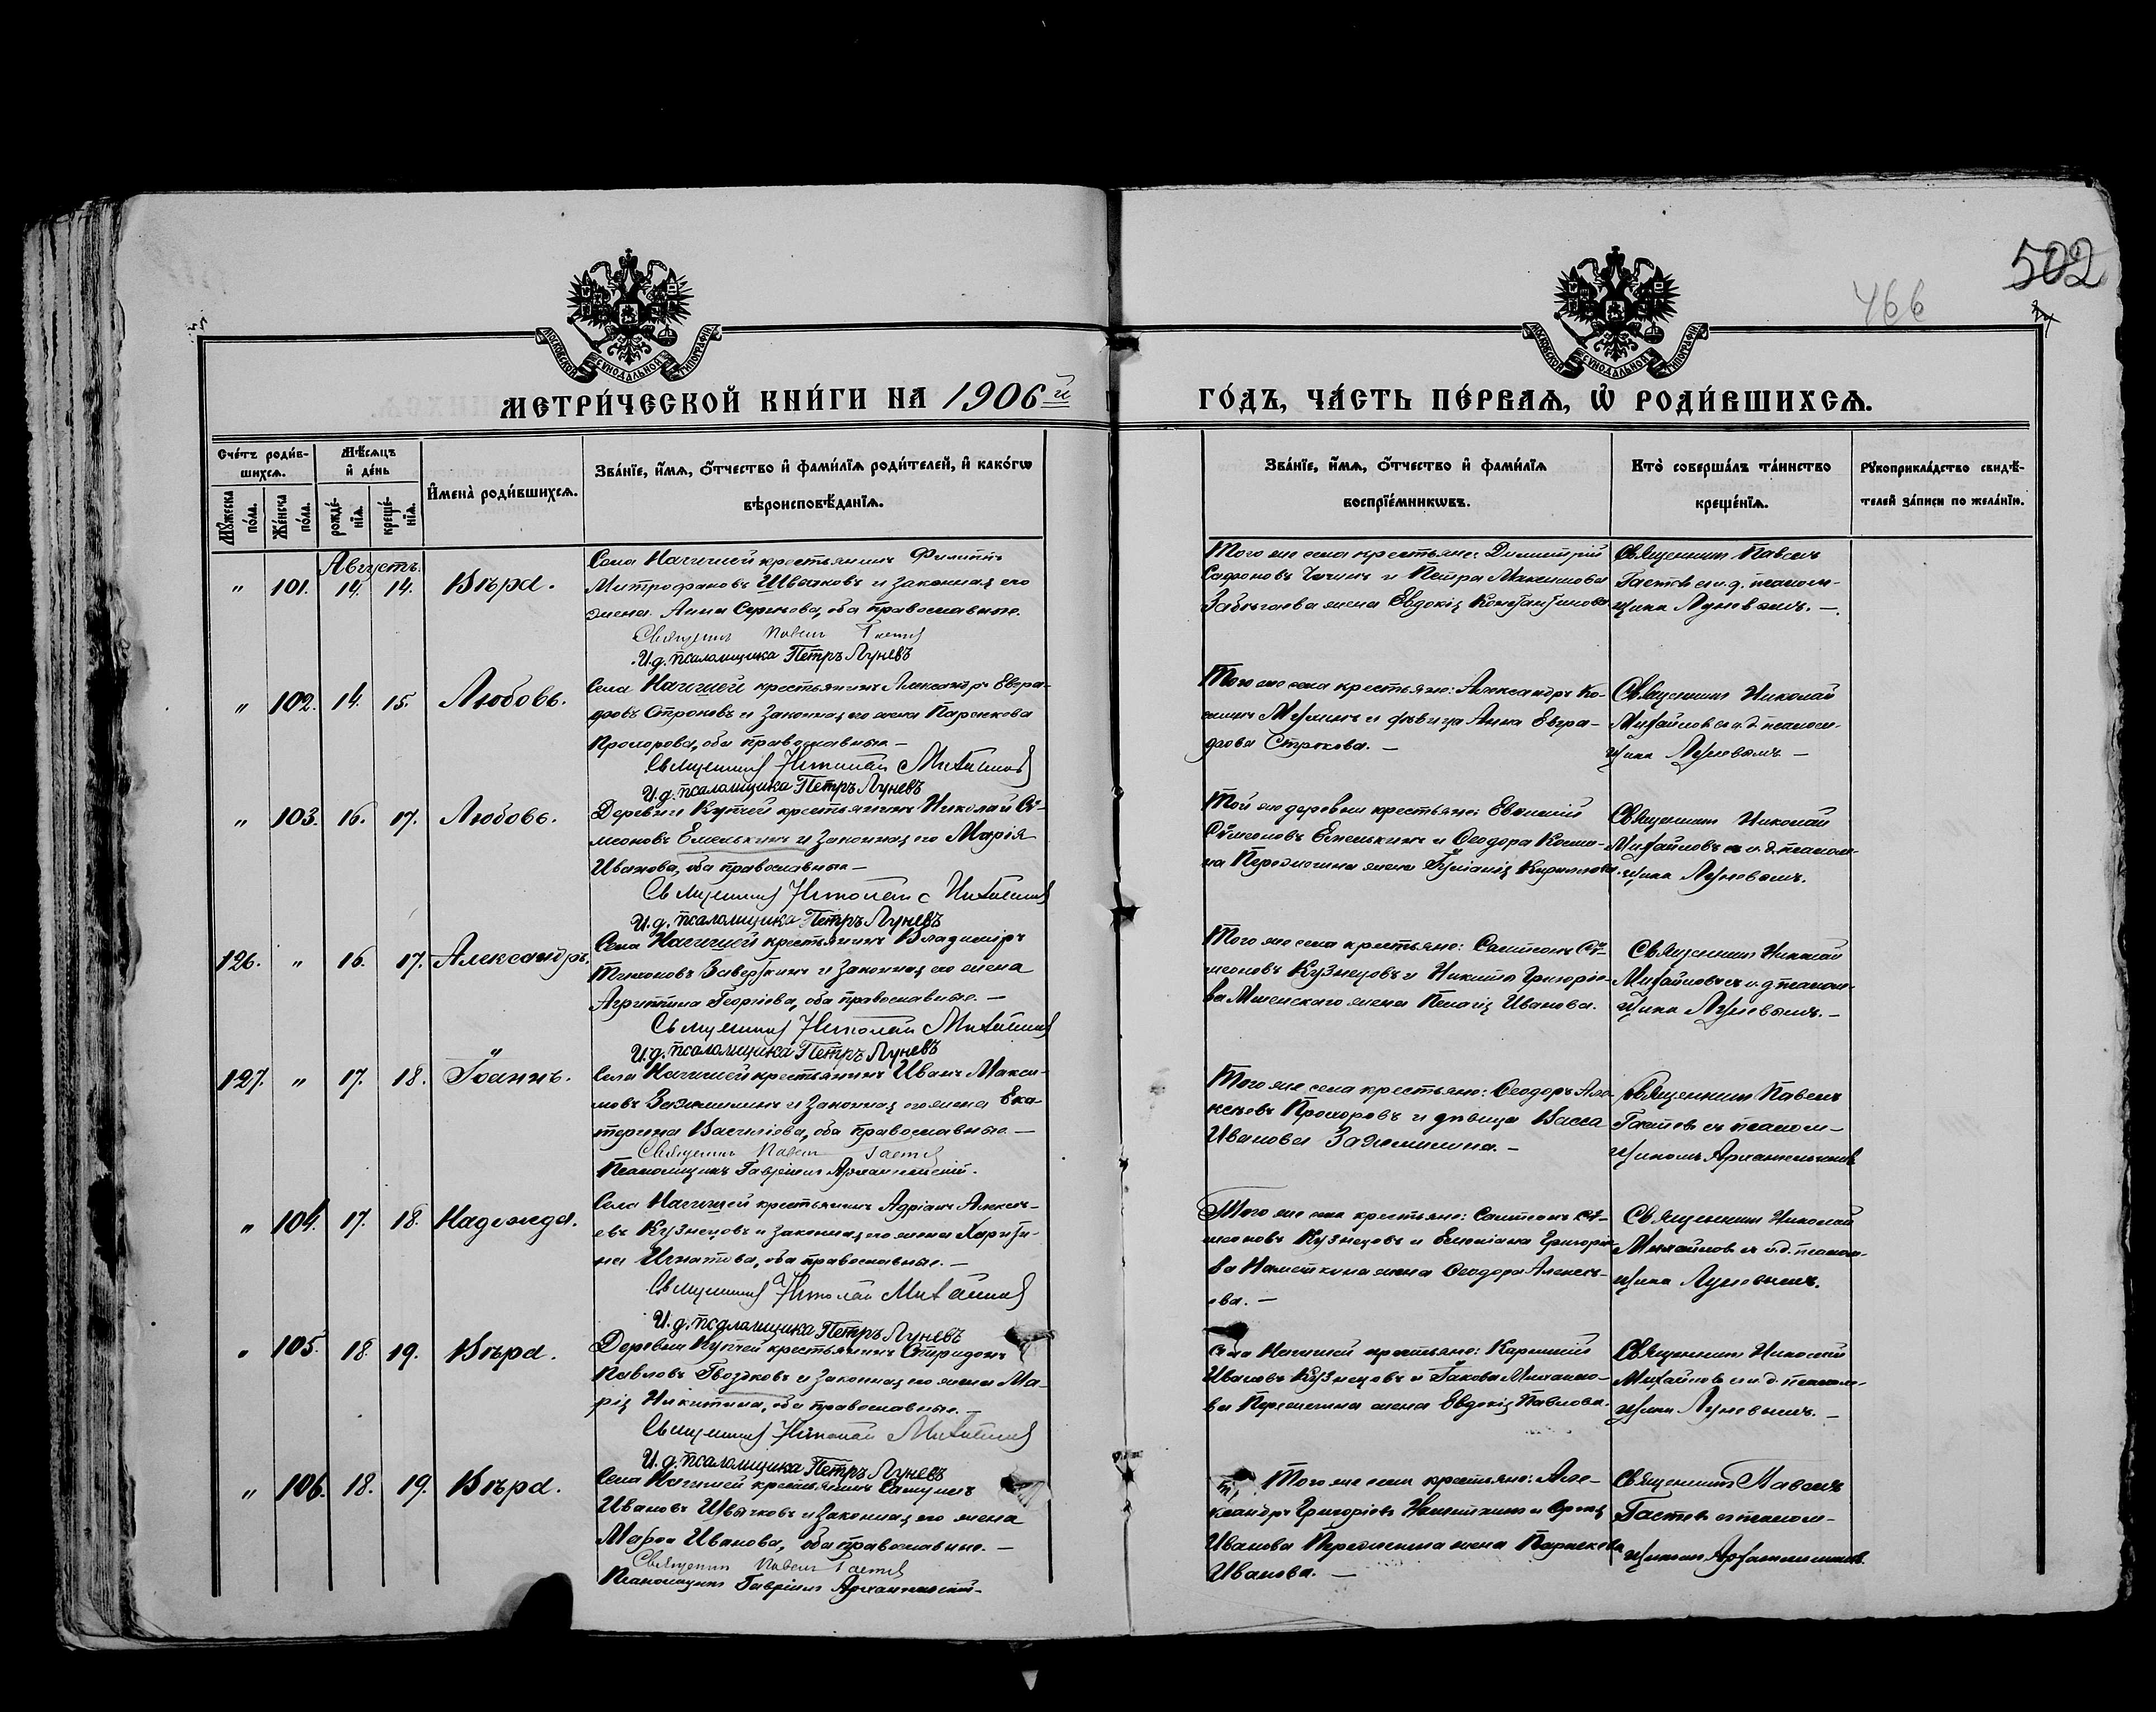 502
466
МОСКОВСКОЙ СѴНОДАЛЬНОЙ ТИПОГРАФІИ
МОСКОВСКОЙ СѴНОДАЛЬНОЙ ТИПОГРАФІИ
МЕТРИ́ЧЕСКОЙ КНИ́ГИ НА 1906й ГО́ДЪ, ЧА́СТЬ ПЕ́РВАѦ, Ѡ҆ РОДИ́ВШИХСѦ.
Сче́тъ роди́в-
шихсѧ.
Мꙋ́жеска по́ла.
Же́нска по́ла.
Мѣ́сѧцъ
и҆ де́нь
рожде́-
нїѧ.
креще́-
нїѧ.
И҆мена̀ роди́вшихсѧ.
Зва́нїе, и҆́мѧ, ѻ҆́тчество и҆ фами́лїѧ роди́телей, и҆ како́гѡ
вѣроисповѣ́данїѧ.
Зва́нїе, и҆́мѧ, ѻ҆́тчество и҆ фами́лїѧ
воспрїе́мникѡвъ.
Кто̀ соверша́лъ та́инство
креще́нїѧ.
Рꙋкоприкла́дство свидѣ́-
телей за́писи по жела́нїю.
Августъ.
" 101. 14. 14. Вѣра.
Села Нагишей крестьянинъ Филиппъ
Митрофановъ Швачковъ и законная его
жена Анна Сергѣева, оба православные.
Священникъ Павелъ Гастевъ
И.д. псаломщика Петръ Луневъ
Того же села крестьяне: Димитрій
Сафоновъ и Петра Максимова
жена Евдокія Константинова.
Священникъ Павелъ
Гастевъ с и.д. псалом-
щика Луневымъ. —
" 102. 14. 15. Любовь.
Села Нагишей крестьянинъ Александръ Евгра-
фовъ Строковъ и законная его жена Параскева
Прохорова, оба православные —
Священникъ Николай Михайловъ
И.д. псаломщика Петръ Луневъ
Того же села крестьяне: Александръ Ко-
и дѣвица Анна Евгра-
фова Строкова. —
Священникъ Николай
Михайловъ с и.д. псалом-
щика Луневымъ —
" 103. 16. 17. Любовь.
Деревни Купчей крестьянинъ Николай Сѵ-
меоновъ Емелькинъ и законная его Марія
Иванова, оба православные —
Священникъ Николай Михайловъ
И.д. псаломщика Петръ Луневъ
Той же деревни крестьяне: Евгеній
Сѵмеоновъ Емелькинъ и Ѳеодора
жена Іуліанія Кириллова.
Священникъ Николай
Михайловъ с и.д. псалом-
щика Луневымъ.
126. " 16. 17. Александръ.
Села Нагишей крестьянинъ Владиміръ
Тихоновъ и законная его жена
Агриппина Георгіева, оба православные. —
Священникъ Николай Михайловъ
И.д. псаломщика Петръ Луневъ
Того же села крестьяне: Сампсонъ Сѵ-
меоновъ Кузнецовъ и Никиты Григорье-
ва жена Пелагія Иванова.
Священникъ Николай
Михайловъ с и.д. псалом-
щика Луневымъ. —
127. " 17. 18. Іоаннъ.
Села Нагишей крестьянинъ Иванъ Макси-
мовъ и законная его жена Ека-
терина Василіева, оба православные. —
Священникъ Павелъ Гастевъ
Псаломщикъ Гавріилъ Архангельскій.
Того же села крестьяне: Ѳеодоръ Але-
ксѣевъ Прохоровъ и дѣвица Васса
Иванова. —
Священникъ Павелъ
Гастевъ съ псалом-
щикомъ Архангельскимъ
" 104. 17. 18. Надежда.
Села Нагишей крестьянинъ Адріанъ Алексѣ-
евъ Кузнецовъ и законная его жена Харити-
на Игнатова, оба православные. —
Священникъ Николай Михайловъ
И.д. псаломщика Петръ Луневъ
Того же села крестьяне: Сампсонъ Сѵ-
меоновъ Кузнецовъ и Григорье-
ва жена Ѳеодора Алексѣ-
ева. —
Священникъ Николай
Михайловъ с и.д. псалом-
щика Луневымъ.
" 105. 18. 19. Вѣра.
Деревни Купчей крестьянинъ Спиридонъ
Павловъ Гвоздковъ и законная его жена Ма-
рія Никитина, оба православные. —
Священникъ Николай Михайловъ
И.д. псаломщика Петръ Луневъ
Села Нагишей крестьяне:
Ивановъ Кузнецовъ и Іакова Михайло-
ва жена Евдокія Павлова.
Священникъ Николай
Михайловъ с и.д. псалом-
щика Луневымъ. —
" 106. 18. 19. Вѣра.
Села Нагишей крестьянинъ Самуилъ
Ивановъ Швачковъ и законная его жена
Марѳа Иванова, оба православные. —
Священникъ Павелъ Гастевъ
Псаломщикъ Гавріилъ Архангельскій.
Того же села крестьяне: Але-
ксандръ Григорьевъ и
Иванова жена Параскева
Иванова. —
Священникъ Павелъ
Гастевъ съ псалом-
щикомъ Архангельскимъ.